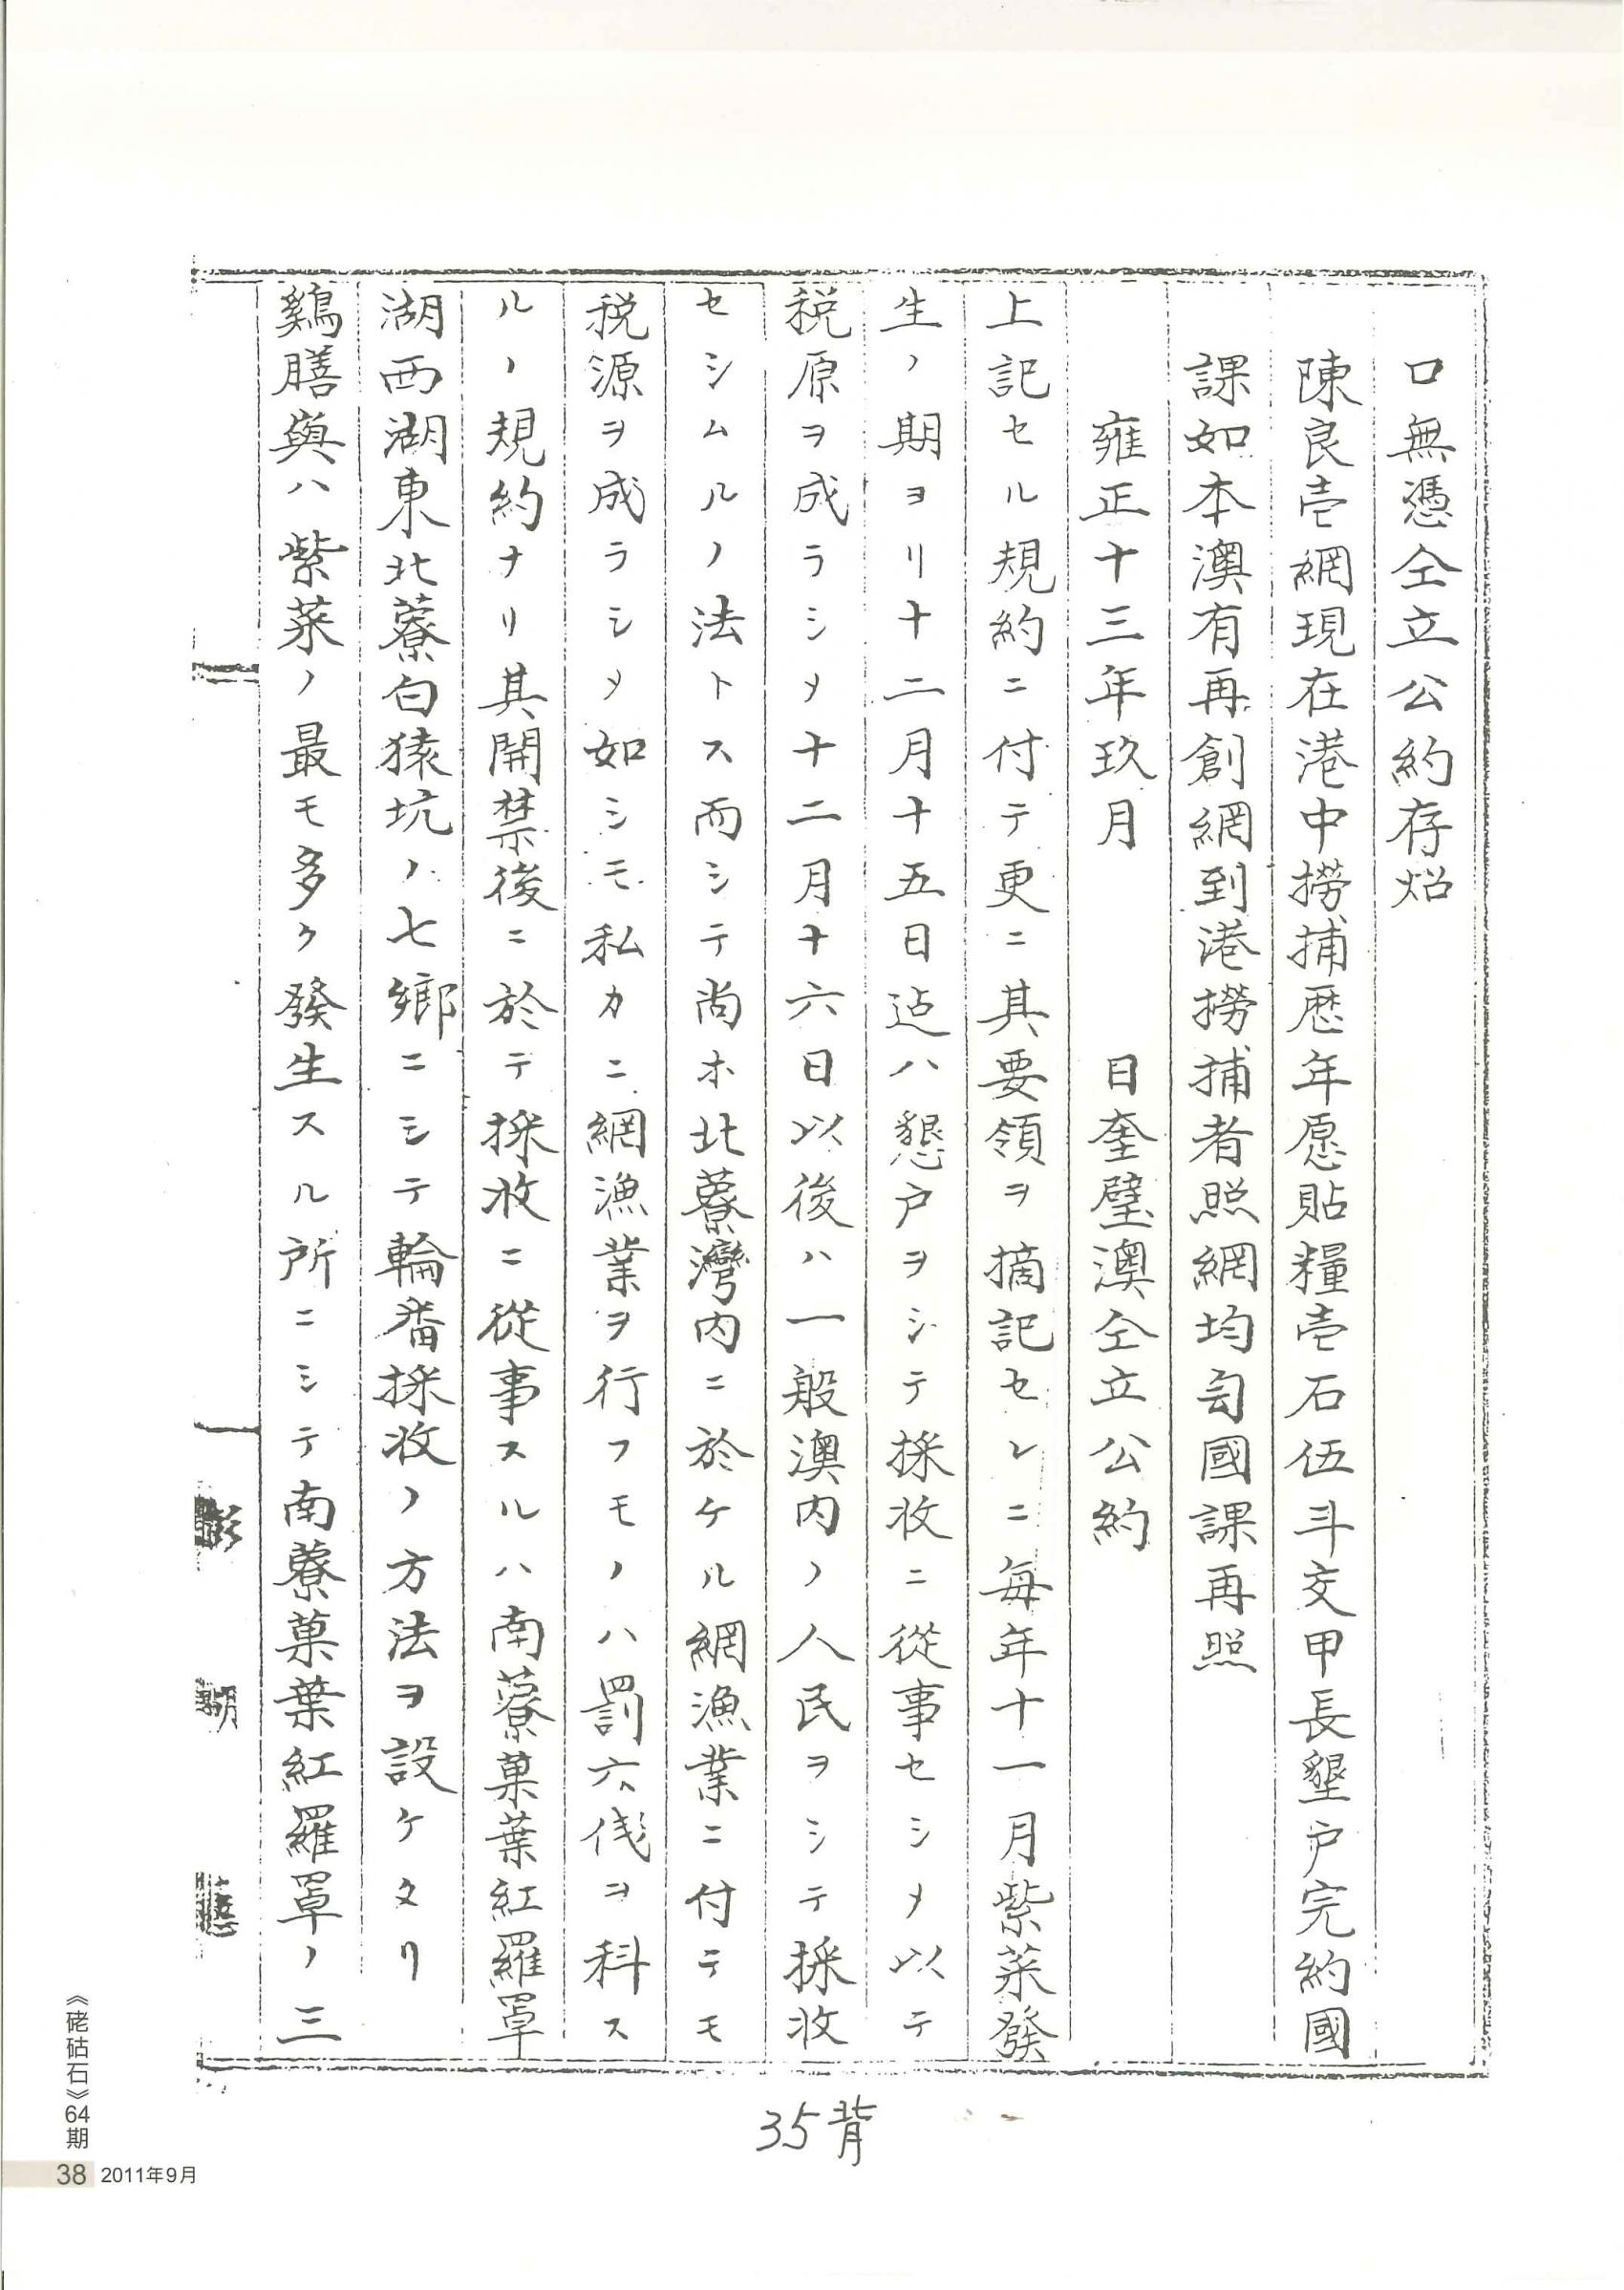 口無憑仝立公約存炤
陳良壱網現在港中撈捕歷年愿貼糧壱石伍斗交甲長墾户完約國
課如本澳有再創網到港撈捕者照網均匀國課再照
雍正十三年玖月　　　日奎璧澳仝立公約
上記セル規約ニ付テ更ニ其要領ヲ摘記センニ每年十一月紫菜發
生ノ期ヨリ十二月十五日迠ハ懇户ヲシテ採收ニ從事セシメ以テ
税原ヲ成ラシメ十二月十六日以後ハ一般澳内ノ人民ヲシテ採收
セシムルノ法トス而シテ尚ホ北藔灣内ニ於ケル網漁業ニ付テモ
税源ヲ成ラシメ如シモ私カニ網漁業ヲ行フモノハ罰六伐ヲ科ス
ルノ規約ナリ其開禁後ニ於テ採收ニ從事スルハ南藔菓葉紅羅罩
湖西湖東北藔白猿坑ノ七鄉ニシテ輪番採收ノ方法ヲ設ケタリ
鷄膳與ハ紫菜ノ最モ多ク發生スル所ニシテ南藔菓葉紅羅罩ノ三
澎湖廳
35背
《硓𥑮石》64期
38 2011年9月